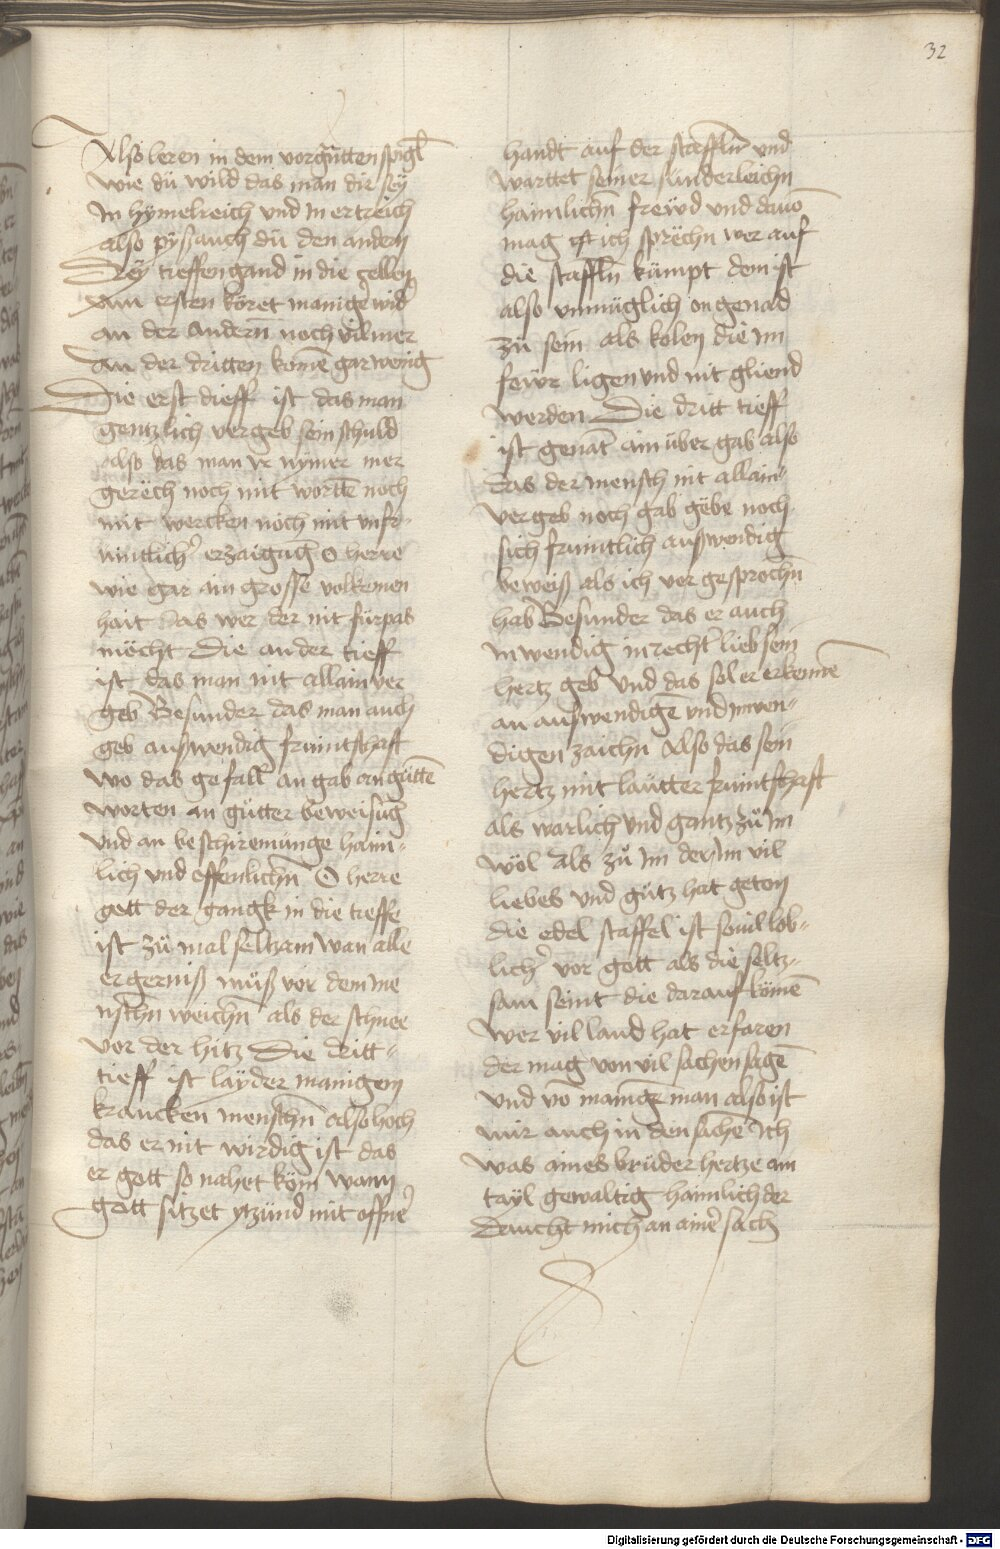 32
Also leren in dem vorgnãtten spigl̄
wie dü wild das man dir seÿ
In hymelreich vnd in ertreich
also pÿß auch dü den andern
Dreÿ tieffen gand in die zellen
Am ersten köret maniger wid'
an der andern noch vil mer
an der dritten komē gar wenig
Die erst dieff ist das man
gentzlich vergeb sein schuld
also das man ir nÿmer mer
gerëch noch mit wortē noch
mit wercken noch mit vnfr-
nintlich' erzaigūg O herre
wie gar ain grosse volkomen
hait das wer der nit fürpas
möcht Die ander tieff
ist das man nit allain ver
geb Besunder das man auch
geb außwendig fruintschaft
wo das gefall an gab an guttē
worten an gütter beweisūg
vnd an beschiremunge haim-
lich vnd offenlichn̄ O herre
gott der gangk in die tieffe
ist zü mal seltzam wan alle
ergerniß müß vor dem me
nschn̄ weichn̄ als der schnee
vor der hitz Die dritt-
tieff ist laÿder manigem
krancken menschn̄ also hoch
das er nit wirdig ist das
er gott so nahet köm wann
gott sitzet ytzünd mit offne'
handt auf der staffln̄ vnd
warttet seiner sunderleichn
haimlichn̄ frewd vnd dauō
mag ich sprëchn wer auf
die staffln̄ kümpt dem ist
also vnmüglich on genad
zü sein als kolen die im
fewr ligen vnd nit gliend
werden Die dritt tieff
ist genāt ain über gab also
das der mensch nit allain-
vergeb noch gab gëbe noch
sich fruintlich außwendig
beweiß als ich vor gesprochn̄
hab Besunder das er auch
inwendig in recht lieb sein
hertz geb Vnd das sol er erkennē
an außwendigē vnd inwen-
digen zaichn Also das sein
hertz mit lautter fruintschaft
als warlich vnd gantz zü im
wöl als zü im der im vil
liebes vnd gütz hat geton
die edel staffel ist souil lob-
lich' vor gott als die seltz-
sam seint die darauf komē
Wer vil land hat erfaren
der mag von vil sachen sagē
vnd vō mainge man also ist
mir auch in den sachē Ich
was aines brüder hertze ain
taÿl gewaltig haimlich der
daucht mich an aine' sach
Digitalisierung gefördert durch die Deutsche Forschungsgemeinschaft - DFG